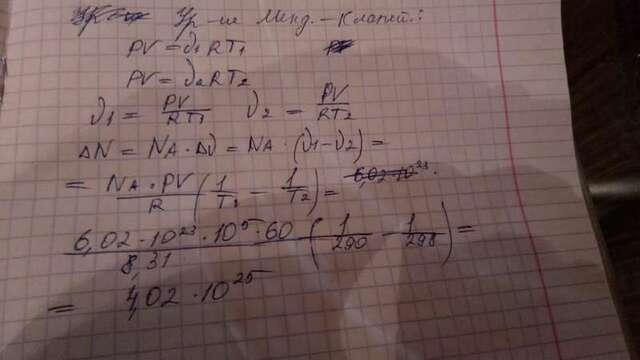 Ур-ие Менд.-Клапей.:
PV = ν₁RT₁
PV = ν₂RT₂
ν₁ = PV/RT₁ ν₂ = PV/RT₂
ΔN = NA · Δν = NA · (ν₁ - ν₂) =
= NA · PV/R (1/T₁ - 1/T₂) =
6,02 · 10²³ · 10⁵ · 60/8,31 (1/290 - 1/298) =
= 4,02 · 10²⁵